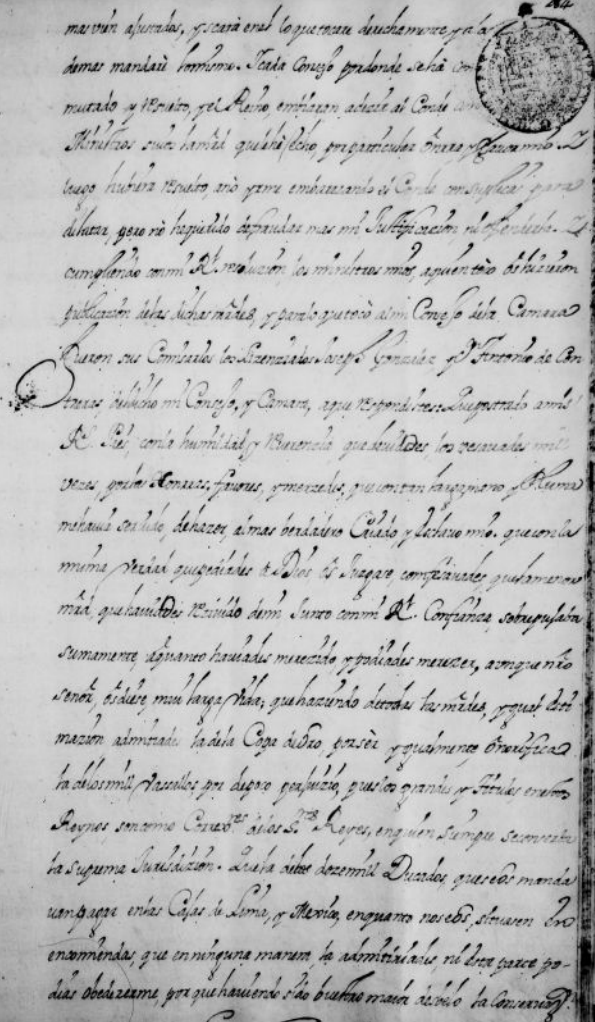 mas vien ajustados, y seará en el lo que tocare derechamente, y a la
demas mandaré lo mismo. I cada Consejo por donde se ha con
mutado y resuelto, y el Reino, embiaran a decir al Conde
Ministros suios la mrd que le hé fecho, por particular
luego hubiera resuelto, año y embarazando el Conde con suplicas, para
dilatar, pero nó hé querido defraudar mas mi Justificacion ni ofenderla. I
cumpliendo con mi Rl. resoluzion los ministros mios, a quien tocó hizieron
publicazion de las dichas mrdes, y por lo que tocó al mi Consejo de la Camara
fueron sus Comisarios los Lizenziados Joseph Gonzalez y Dn Antonio de Con
treras de dicho mi Consejo, y Camara, a que respondistes: Que postrado a mis
Rs. Pies, con la humildad, y Reverencia que deviades, los vesavades mill
vezes, por las Honrras, favores, y mercedes, que con tan larga mano y Pluma
me havia servido, de hazer, al mas berdadero Criado y Esclavo mio. que con la
misma Verdad que pediades á Dios os Juzgare, confesavades, que la menor
mrd, que haviades rezivido de mi Junto con mi Rl. Confianza, sobrepujava
sumamente, á quanto haviades merezido, y podiades merezer, aunque nro
señor, os diese, mui larga, Vida; que haziendo de todas las mrdes, ygual esti
mazion admitiades la de la Copa de Oro, por sér y gualmente Onorifica
la de los mil Vasallos, por de poco perjuizio, pues los grandes y Titulos en estos
Reynos, son como Correxres. de los Ses. Reyes, en quien siempre se conserva
la suprema Jurisdizion. Que la de los doze mil Ducados, que se os manda
van pagar en las Cajas de Lima, y Mexico, en quanto no se os situasen en
encomiendas, que en ninguna manera, la admitiriades, ni en esta parte po-
diais obedezerme, por que haviendo sido buestro maior deseo la Conservaon.